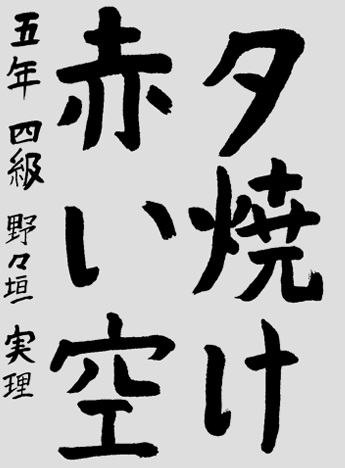 夕焼け
赤い空
五年 四級 野々垣 実理